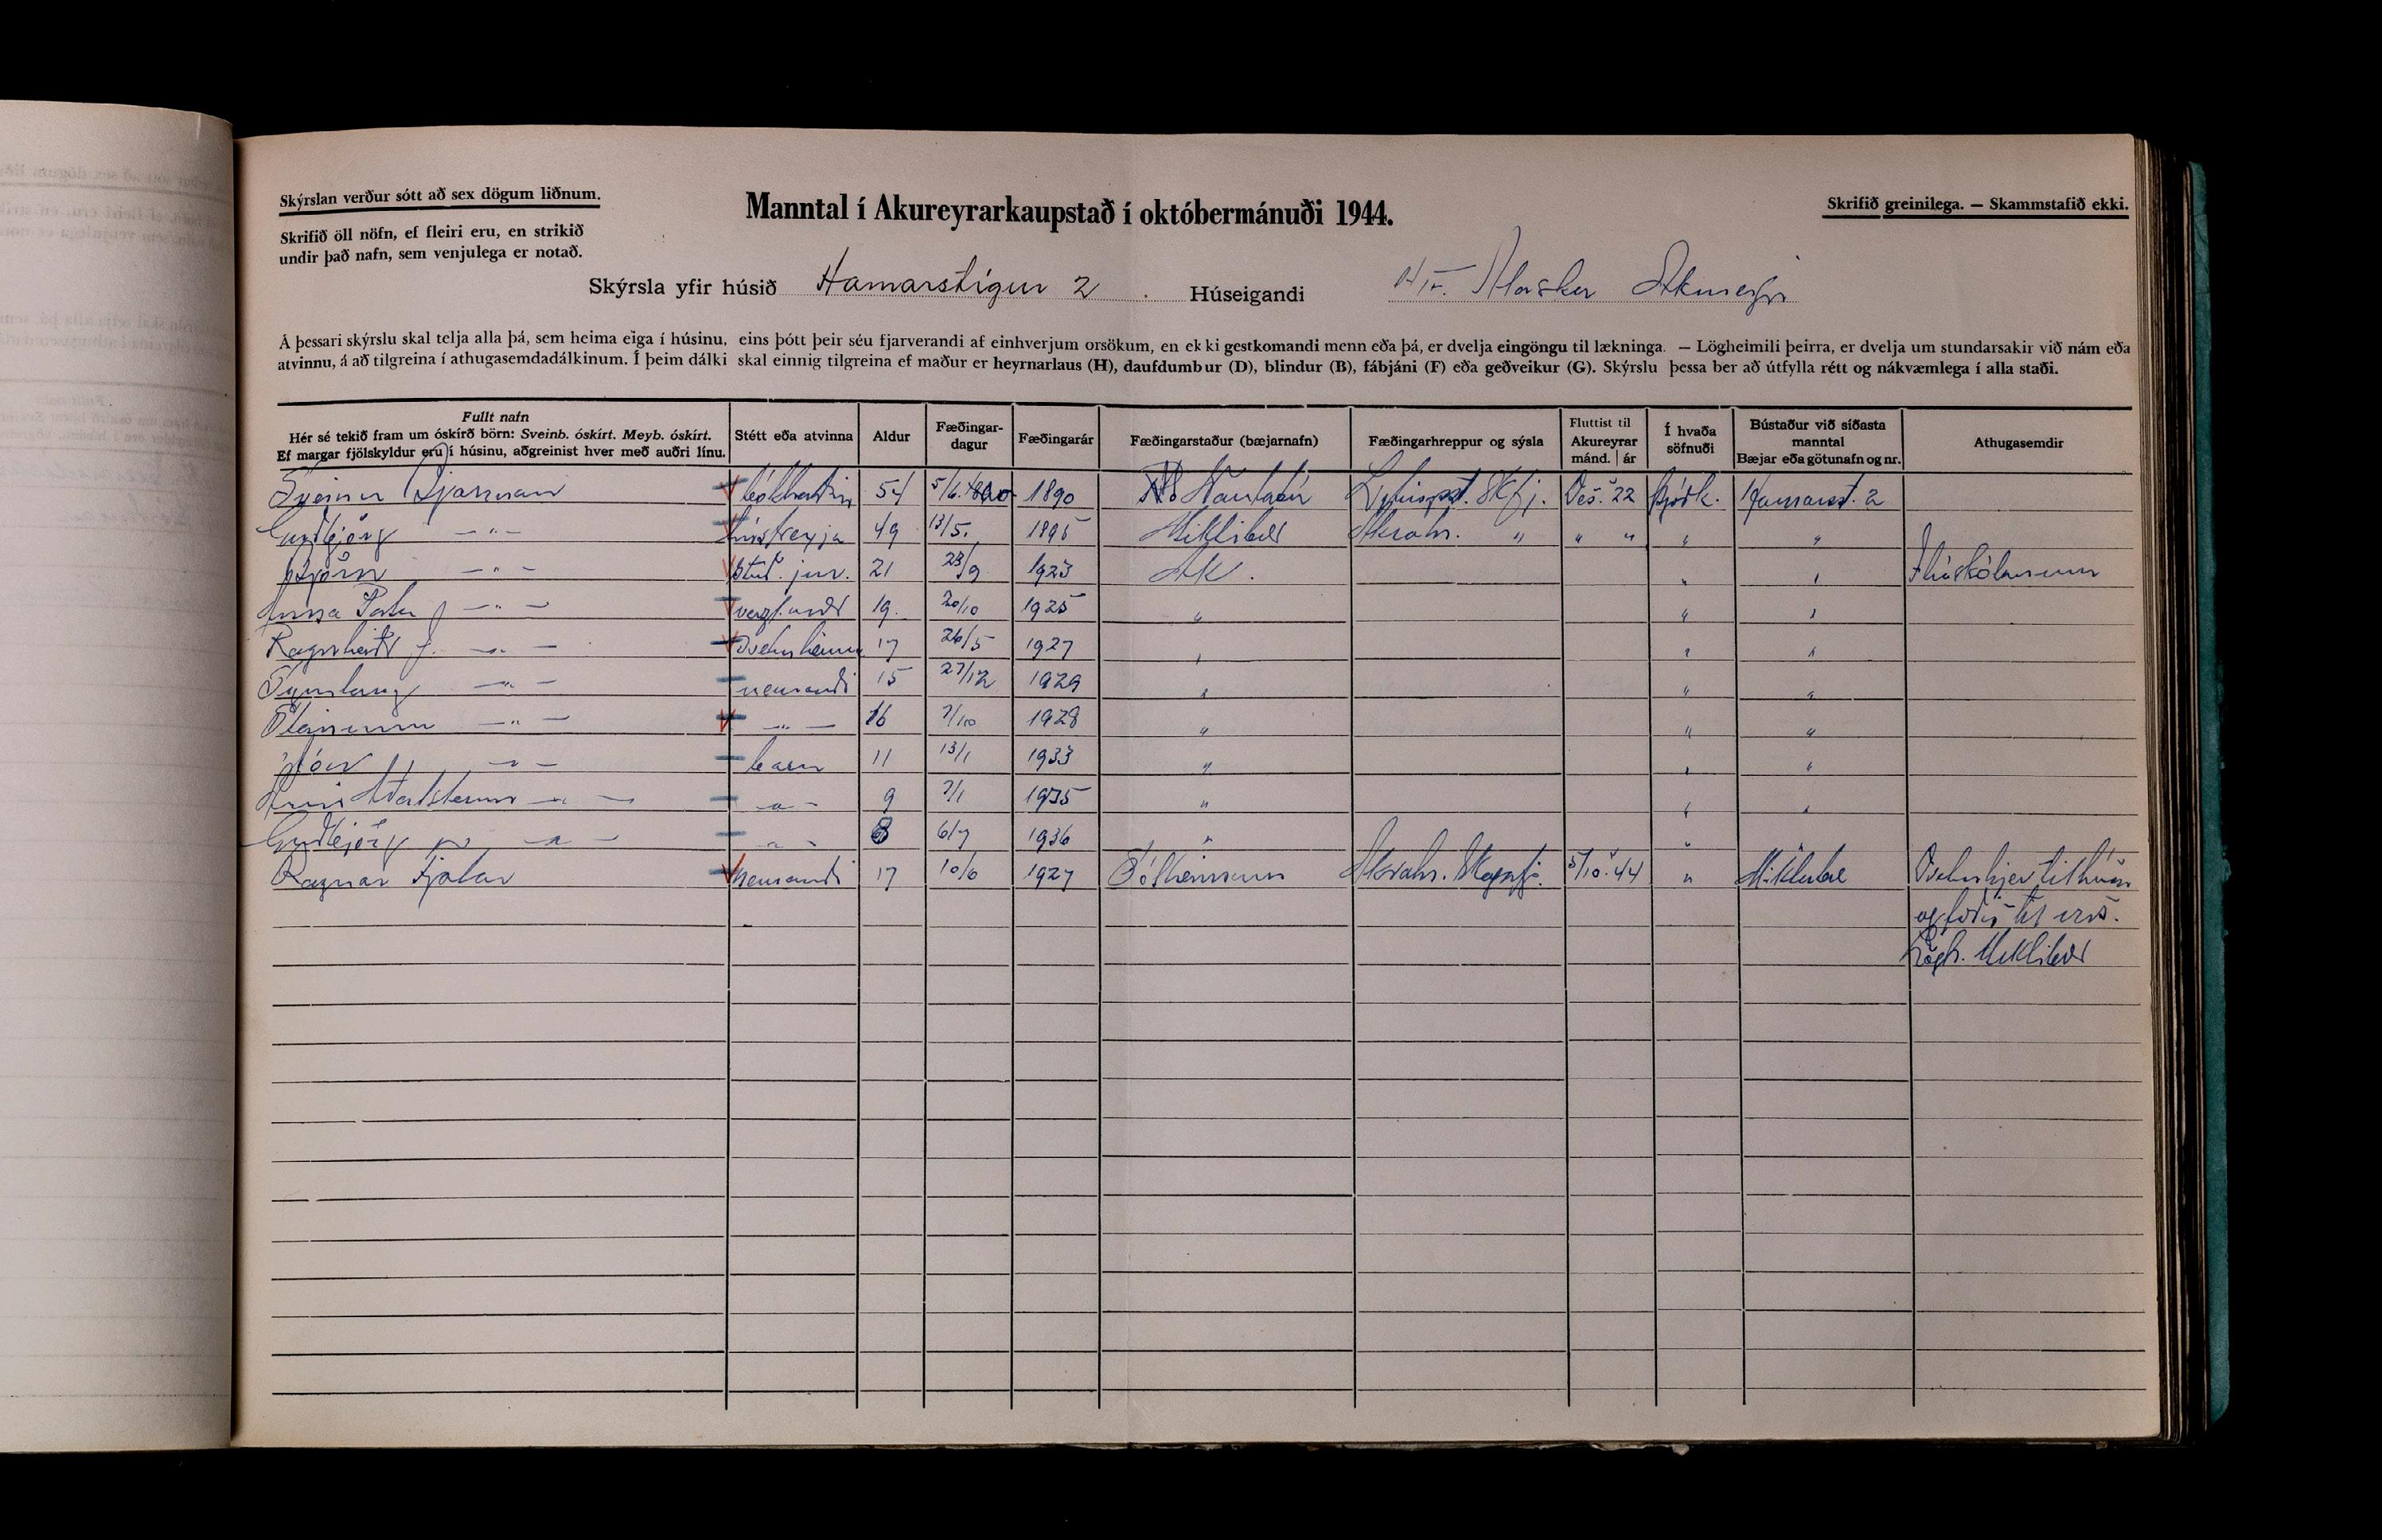 Skýrslan verður sótt að sex dögum liðnum.
Manntal í Akureyrarkaupstað í októbermánuði 1944.
Skrifið greinilega. — Skammstafið ekki.
Skrifið öll nöfn, ef fleiri eru, en strikið
undir það nafn, sem venjulega er notað.
Skýrsla yfir húsið Hamarstígur 2 . Húseigandi Akureyri
Á þessari skýrslu skal telja alla þá, sem heima eiga í húsinu, eins þótt þeir séu fjarverandi af einhverjum orsökum, en ekki gestkomandi menn eða þá, er dvelja eingöngu til lækninga. — Lögheimili þeirra, er dvelja um stundarsakir við nám eða
atvinnu, á að tilgreina í athugasemdadálkinum. Í þeim dálki skal einnig tilgreina ef maður er heyrnarlaus (H), daufdumbur (D), blindur (B), fábjáni (F) eða geðveikur (G). Skýrslu þessa ber að útfylla rétt og nákvæmlega í alla staði.
Fullt nafn
Hér sé tekið fram um óskírð börn: Sveinb. óskírt. Meyb. óskírt.
Ef margar fjölskyldur eru í húsinu, aðgreinist hver með auðri línu.
Stétt eða atvinna
Aldur
Fæðingar-
dagur
Fæðingarár
Fæðingarstaður (bæjarnafn)
Fæðingarhreppur og sýsla
Fluttist til
Akureyrar
mánd. | ár
Í hvaða
söfnuði
Bústaður við síðasta
manntal
Bæjar eða götunafn og nr.
Athugasemdir
Sveinn Bjarman 54 5/6. 1890 Skfj. Des. 22 Þjóðk. Hamarst. 2
Guðbjörg —"— húsfreyja 49 13/5. 1895 Miklibær Akrahr. " " " " "
Björn —"— Stud. jur. 21 23/9 1923 Ak. " " Háskólanum
Anna —"— 19. 20/10 1925 " " "
Ragnheiður —"— 17 26/5 1927 " " "
—"— nemandi 15 27/12 1929 " " "
—"— —"— 16 7/10 1928 " " "
Jón —"— barn 11 13/1 1933 " " "
Aðalsteinn —"— —"— 9 7/1 1935 " " "
Guðbjörg —"— —"— 8 6/7 1936 " "
Ragnar Fjalar nemandi 17 10/6 1927 Sólheimum Akrahr. Skagafj. 5/10. 44 " Miklabæ
Lögh. Miklibær